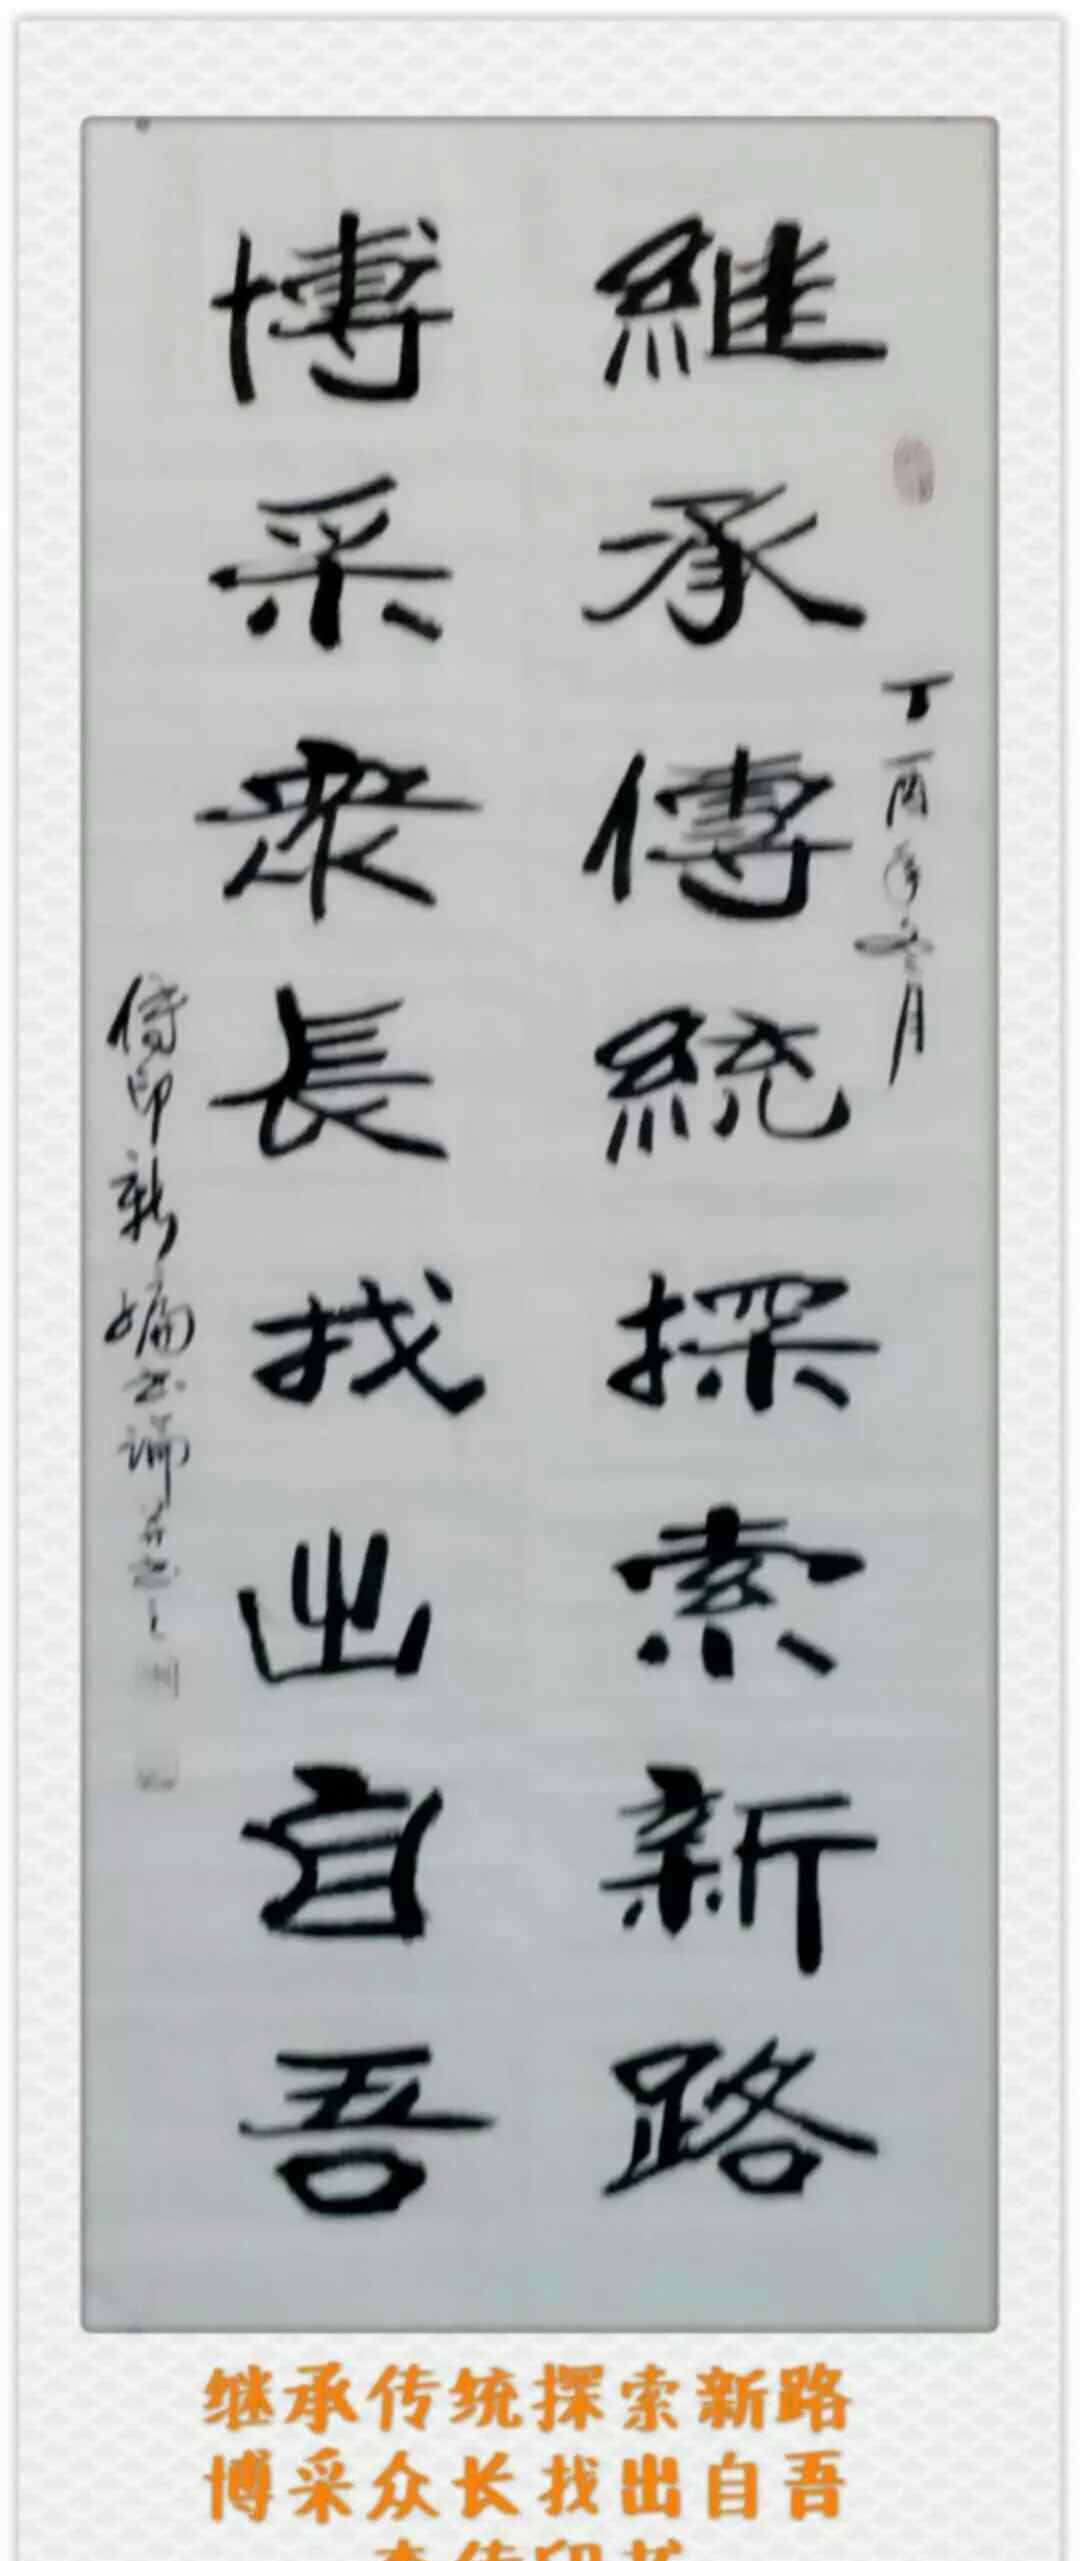 丁酉年六月
繼承傳統探索新路
博采衆長找出自吾
传印新编
继承传统探索新路
博采众长找出自吾
李传印书